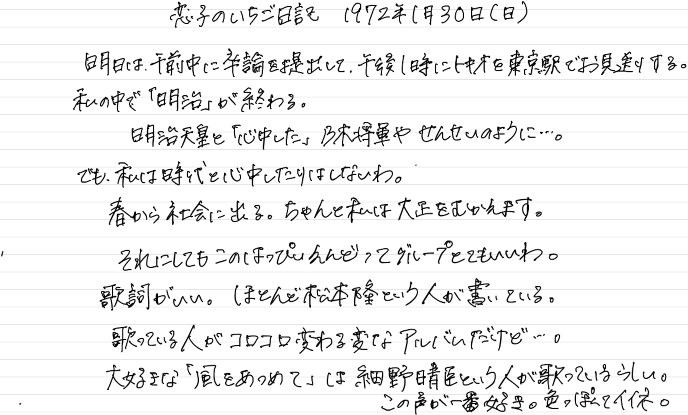 恋子のいちご日記 1972年1月30日(日)
明日は、午前中に卒論を提出して、午後1時にトキオを東京駅でお見送りする。
私の中で「明治」が終わる。
明治天皇と「心中した」乃木将軍や せんせいのように…。
でも、私は時代と心中したりはしないわ。
春から社会に出る。ちゃんと私は大正をむかえます。
それにしてもこのはっぴいえんどってグループとてもいいわ。
歌詞がいい。ほとんど松本隆という人が書いている。
歌っている人がコロコロ変わる変なアルバムだけど…。
大好きな「風をあつめて」は細野晴臣という人が歌っているらしい。
この声が一番好き。色っぽくてイイネ。